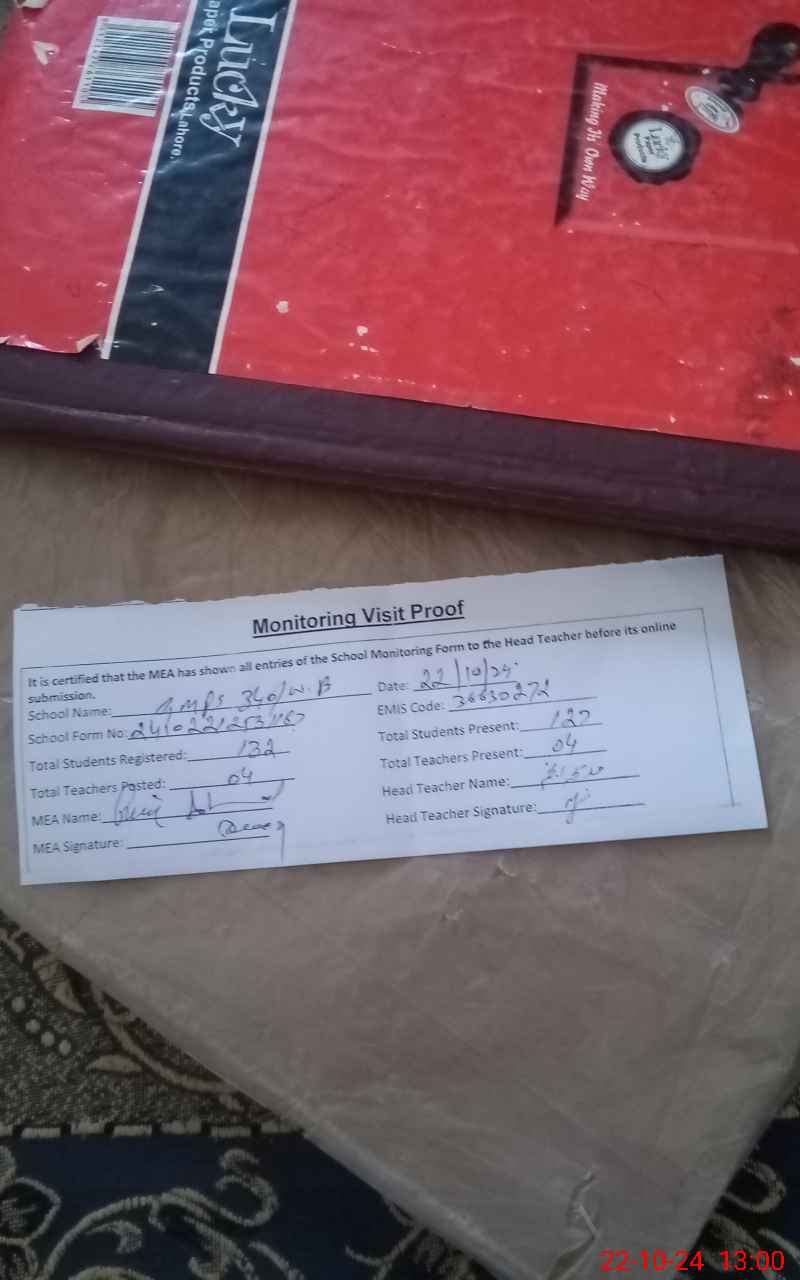 Lucky
aper Products Lahore.
Making Its Own Way
Lucky
Paper
Products
Monitoring Visit Proof
It is certified that the MEA has shown all entries of the School Monitoring Form to the Head Teacher before its online
submission.
School Name: GMPS 340/W.B Date: 22/10/24
School Form No: EMIS Code: 36630272
Total Students Registered: 132 Total Students Present: 127
Total Teachers Posted: 04 Total Teachers Present: 04
MEA Name: Head Teacher Name:
MEA Signature: Head Teacher Signature:
22-10-24 13:00